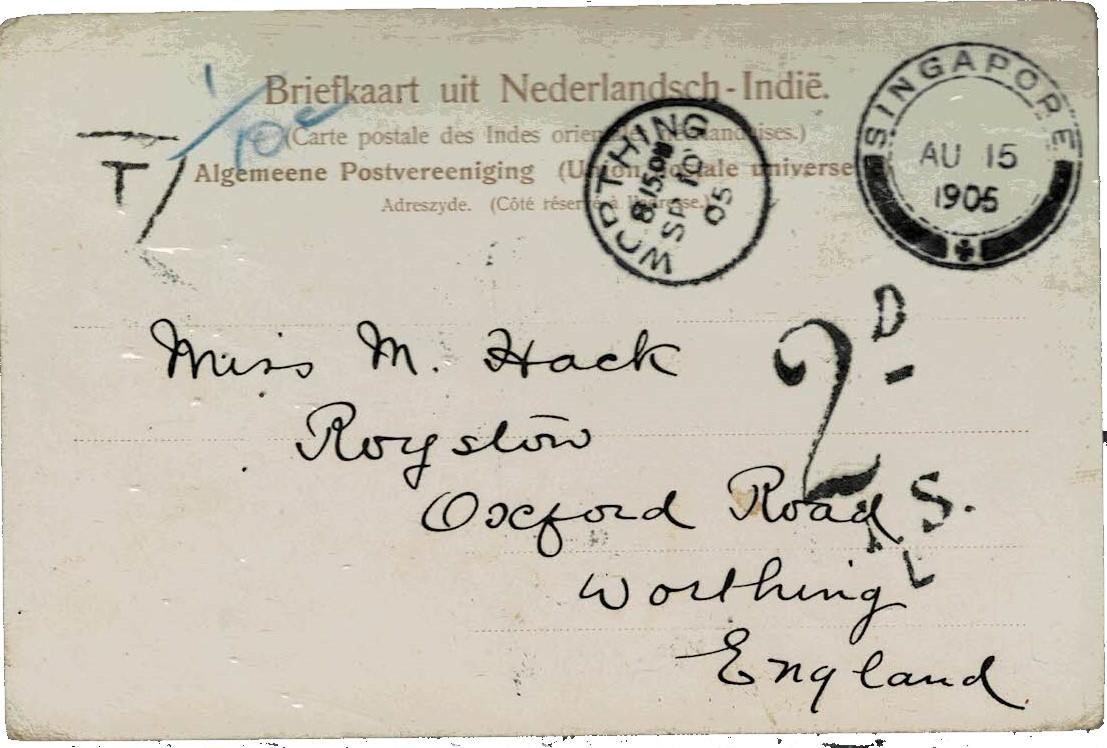 Briefkaart uit Nederlandsch-Indië.
(Carte postale des Indes orien
Algemeene Postvereeniging (Union postale universe
Adreszyde. (Côté réservé à l'adresse.)
T
10c
WORTHING
8.15 PM
SP 10
05
SINGAPORE
AU 15
1905
2D
Miss M. Hack
Royston
Oxford Road
Worthing
England